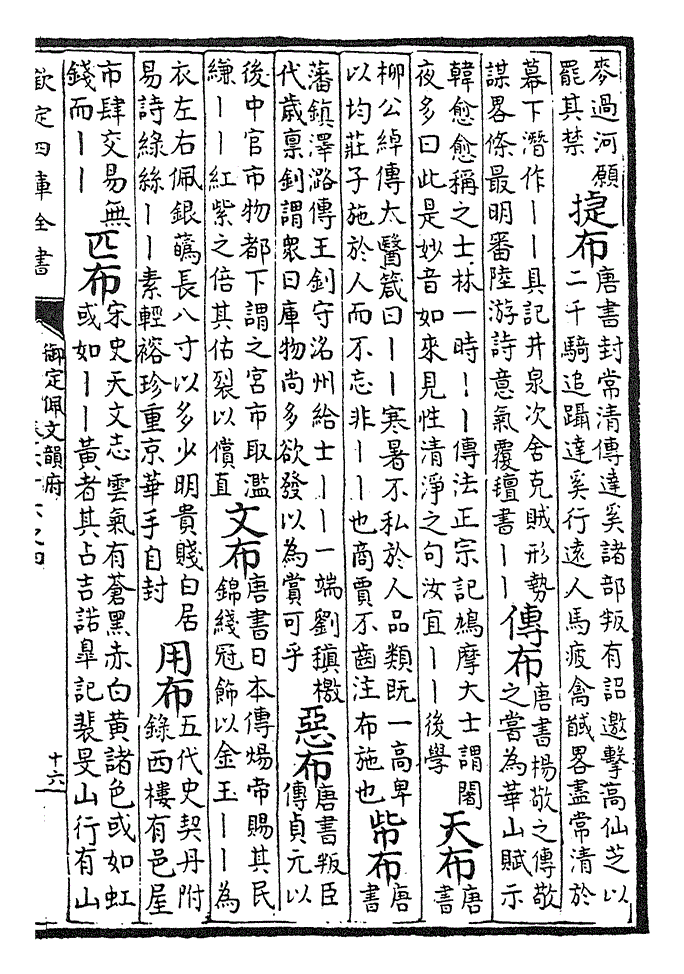 麥過河願
罷其禁
捷布
唐書封常清傳達奚諸部叛有詔邀擊高仙芝以
二千騎追躡達奚行遠人馬疲禽馘畧盡常清於
幕下潛作丨丨具記井泉次舍克賊形勢
謀畧條最明審陸游詩意氣覆氊書丨丨
傳布
唐書楊敬之傳敬
之嘗為華山賦示
韓愈愈稱之士林一時丨丨傳法正宗記鳩摩大士謂闍
夜多曰此是妙音如來見性清淨之句汝宜丨丨後學
天布
唐
書
柳公綽傳太醫箴曰丨丨寒暑不私於人品類既一高卑
以均莊子施於人而不忘非丨丨也商賈不齒注布施也
布
唐
書
藩鎮澤潞傳王釗守洺州給士丨丨一端劉稹檄
代歳禀釗謂衆曰庫物尚多欲發以為賞可乎
惡布
唐書叛臣
傳貞元以
後中官市物都下謂之宮市取濫
縑丨丨紅紫之倍其估裂以償直
文布
唐書日本傳煬帝賜其民
錦綫冠飾以金玉丨丨為
衣左右佩銀蘤長八寸以多少明貴賤白居
易詩綠絲丨丨素輕褣珍重京華手自封
用布
五代史契丹附
錄西樓有邑屋
市肆交易無
錢而丨丨
匹布
宋史天文志雲氣有蒼黑赤白黃諸色或如虹
或如丨丨黃者其占吉諾臯記裴旻山行有山
欽定四庫全書
御定佩文韻府
卷六十六之四
十六